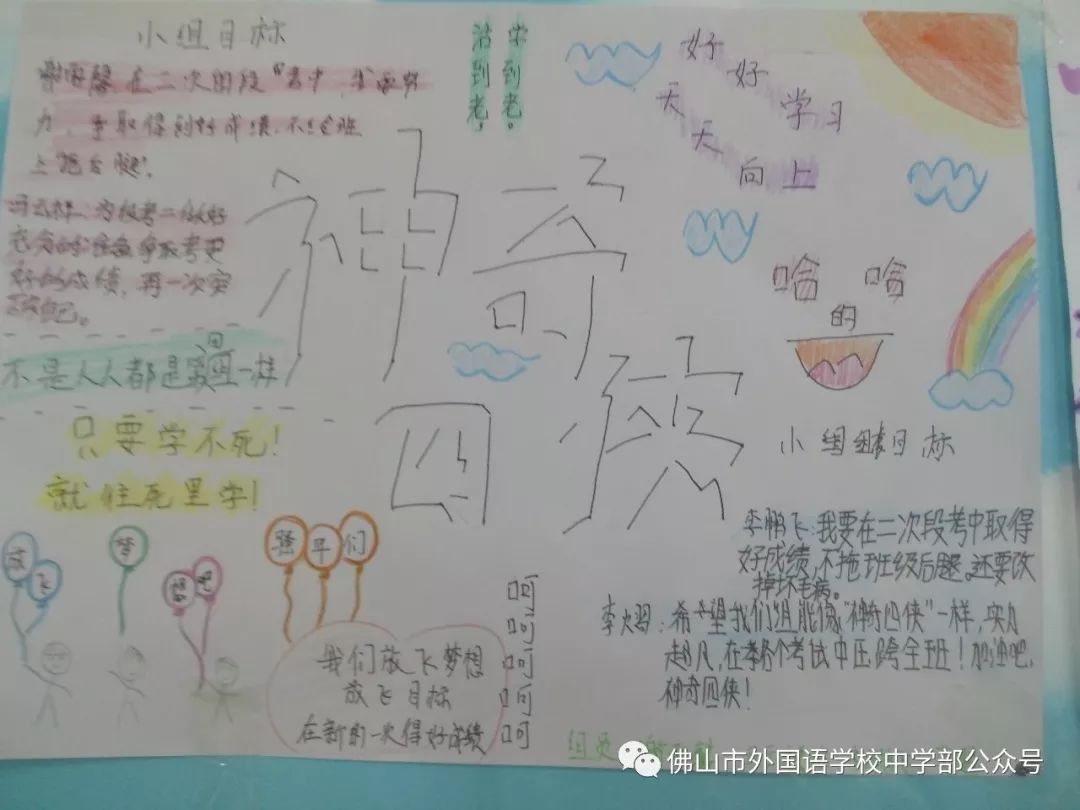 小组目标
在二次阶段考中,我要努
力,争取得到好成绩,不给班
上拖后腿!
为段考二做好
充分的准备争取考更
好的成绩,再一次突
破自己。
不是人人都是四组一样
只要学不死!
就往死里学!
活到老,
学到老。
好好学习
天天向上
神奇
四侠
哈哈
的
小组目标
李鹏飞:我要在二次段考中取得
好成绩,不拖班级后腿。还要改
掉坏毛病。
希望我们组能像“神奇四侠”一样,实力
超凡,在各个考试中压跨全班!加油吧,
神奇四侠!
放飞
梦
想吧
骚年们
我们放飞梦想
放飞目标
在新的一次得好成绩
呵
呵
呵
呵
呵
组员
佛山市外国语学校中学部公众号